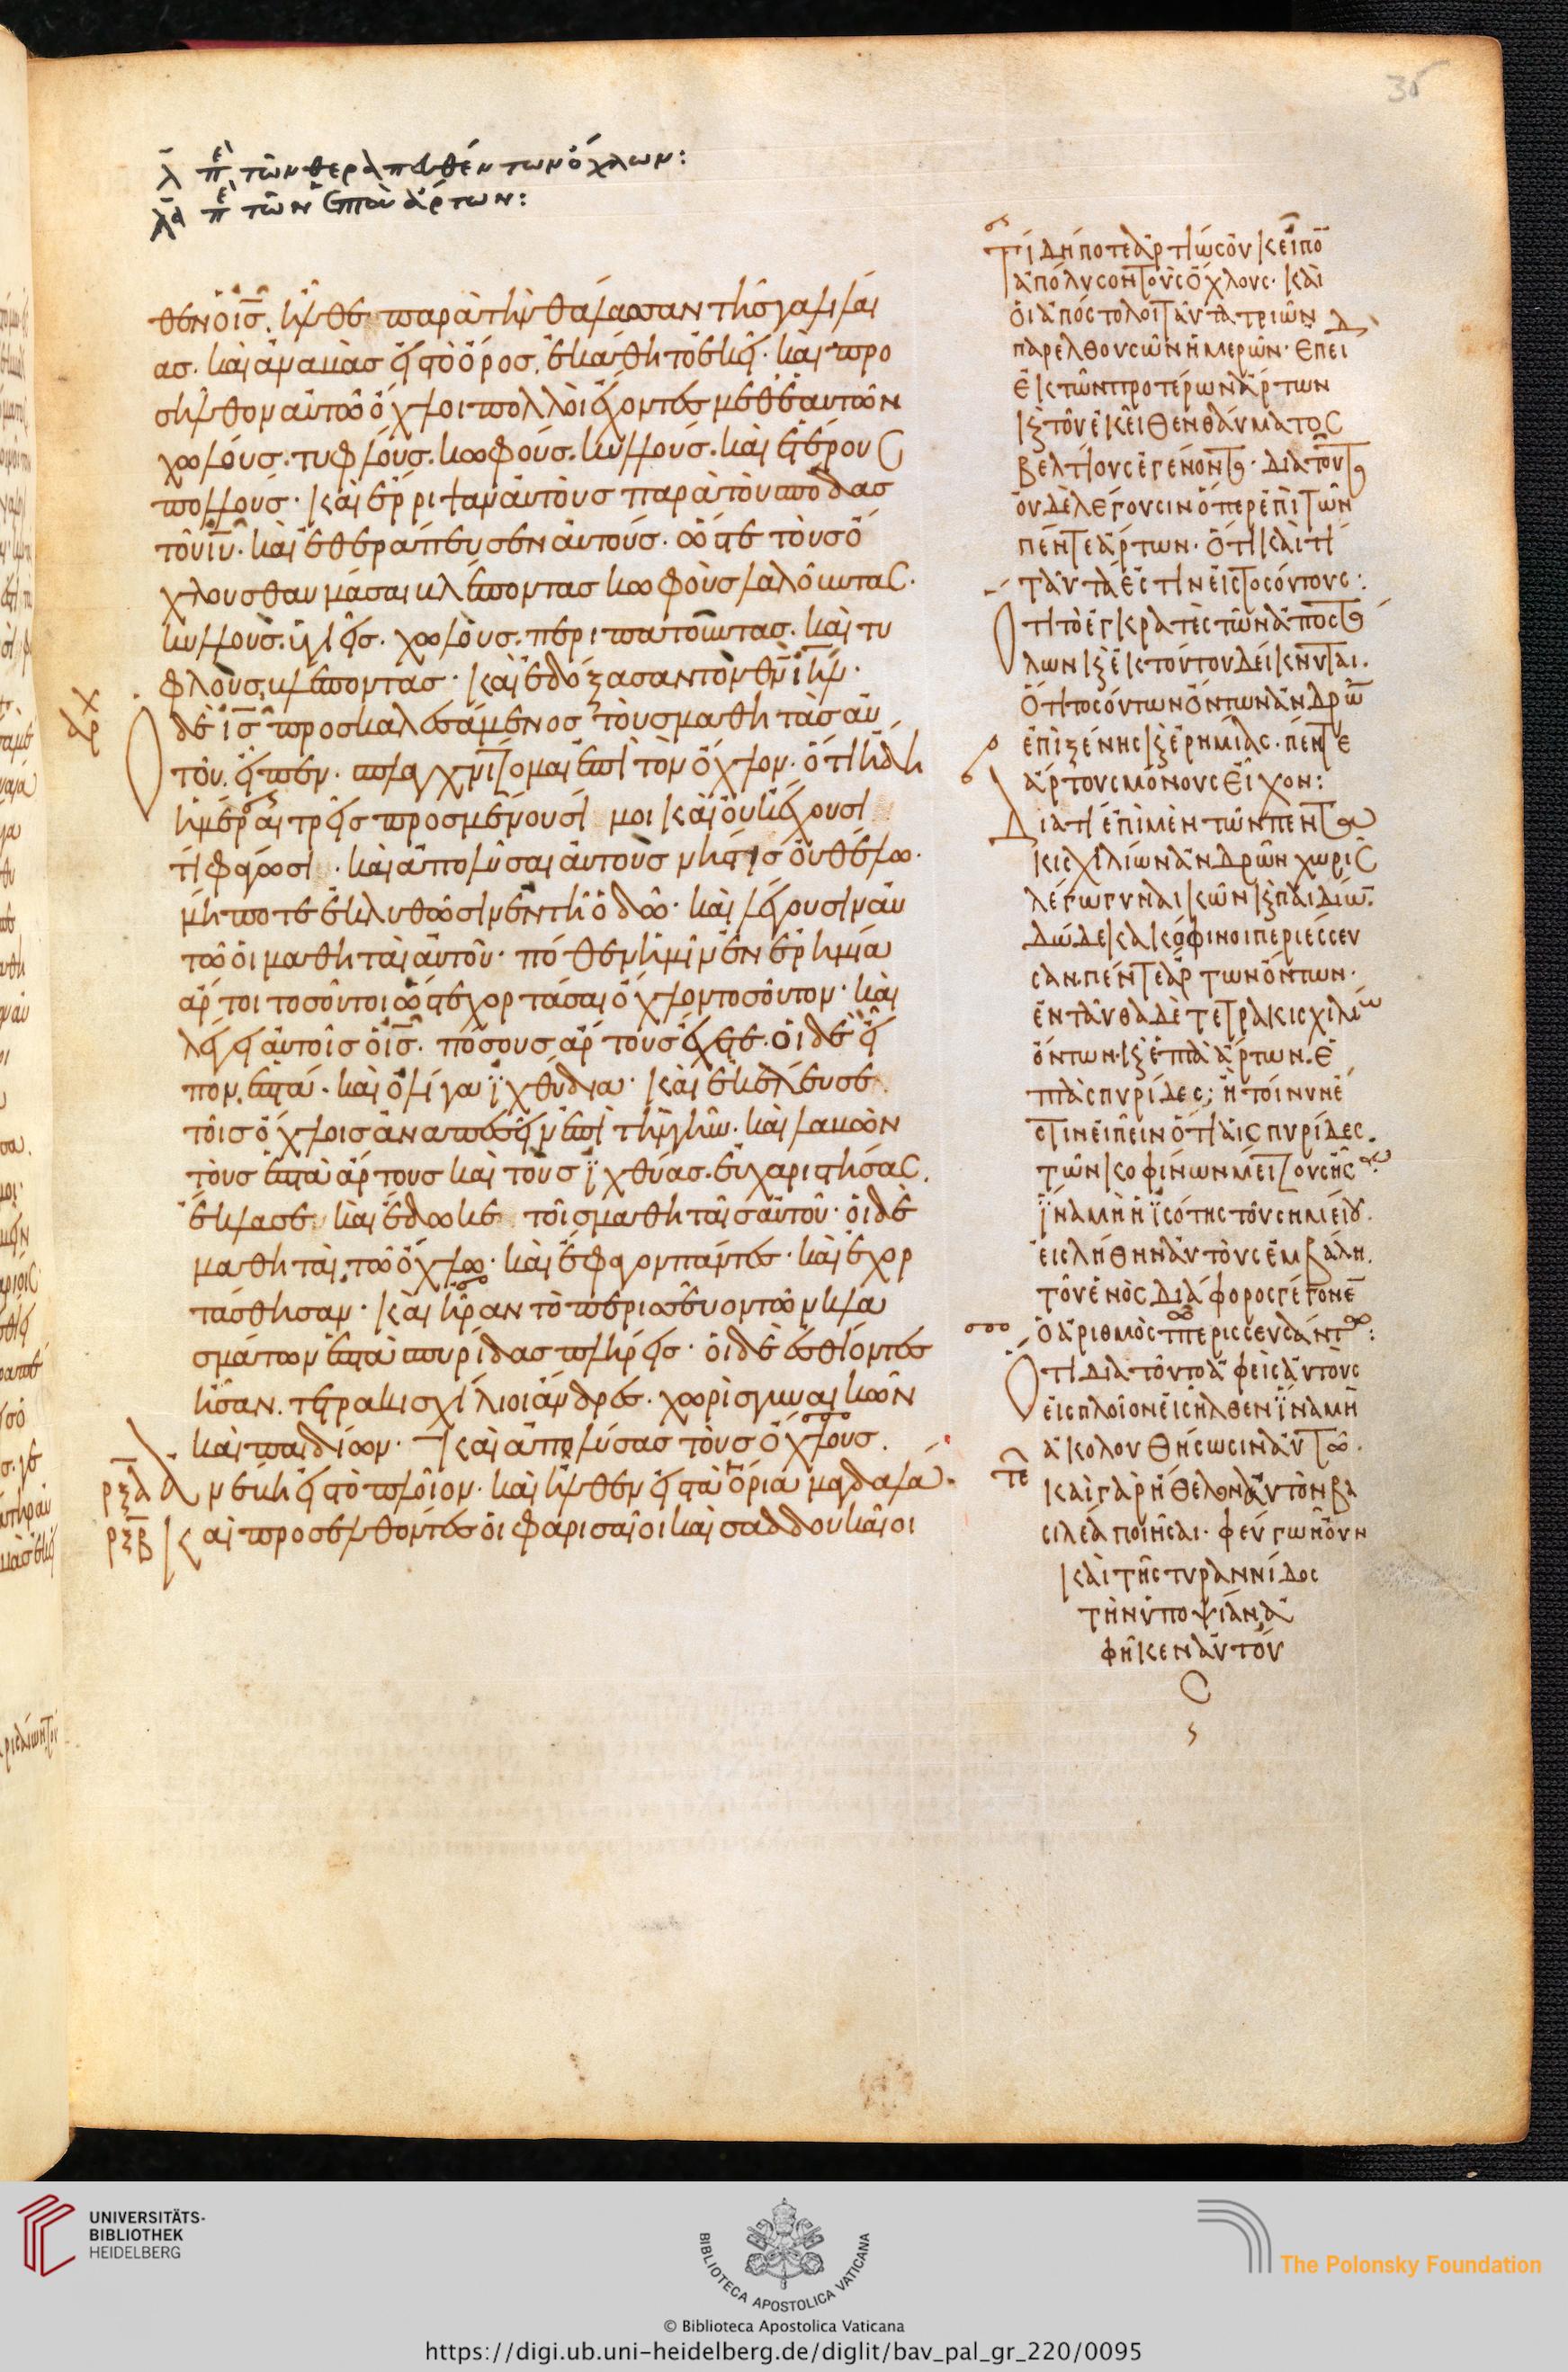 35
λ̄ πε τῶν θεραπευθέντων ὄχλων:
λ̄ᾱ πε τῶν ἑπτὰ ἄρτων:
θεν ὁ ις̅. ἦλθε παρὰ τὴν θάλασσαν τῆς γαλιλαί
ας. καὶ ἀναβὰς εἰς τὸ ὄρος, ἐκάθητο ἐκεῖ. καὶ προ
σῆλθον αὐτῶ ὄχλοι πολλοὶ ἔχοντες μεθ' ἑαυτῶν
χωλούς. τυφλούς. κωφούς. κυλλούς. καὶ ἑτέρους
πολλούς. καὶ ἔρριψαν αὐτοὺς παρὰ τοὺς πόδας
τοῦ ιυ̅. καὶ ἐθεράπευσεν αὐτούς. ὥστε τοὺς ὄ
χλους θαυμάσαι βλέποντας κωφοὺς λαλοῦντας.
κυλλοὺς ὑγιεῖς. χωλοὺς περιπατοῦντας. καὶ τυ
φλοὺς βλέποντας. καὶ ἐδόξασαν τὸν θν̅ ιηλ̅.
Ὁ δὲ ις̅ προσκαλεσάμενος τοὺς μαθητὰς αὐ
τοῦ. εἶπεν. σπλαγχνίζομαι ἐπὶ τὸν ὄχλον. ὅτι ἤδη
ἡμέραι τρεῖς προσμένουσί μοι καὶ οὐκ ἔχουσι
τί φάγωσι. καὶ ἀπολῦσαι αὐτοὺς νήστις οὐ θέλω.
μήποτε ἐκλυθῶσιν ἐν τῆ ὁδῶ. καὶ λέγουσιν αὐ
τῶ οἱ μαθηταὶ αὐτοῦ. πόθεν ἡμῖν ἐν ἐρημία
ἄρτοι τοσοῦτοι ὥστε χορτάσαι ὄχλον τοσοῦτον. καὶ
λέγει αὐτοῖς ὁ ις̅. πόσους ἄρτους ἔχετε. οἱ δὲ εἶ
πον. ἑπτά. καὶ ὀλίγα ἰχθύδια. καὶ ἐκέλευσε
τοῖς ὄχλοις ἀναπεσεῖν ἐπὶ τὴν γῆν. καὶ λαβὼν
τοὺς ἑπτὰ ἄρτους καὶ τοὺς ἰχθύας. εὐχαριστήσας.
ἔκλασε. καὶ ἔδωκε τοῖς μαθηταῖς αὐτοῦ. οἱ δὲ
μαθηταὶ. τῶ ὄχλω. καὶ ἔφαγον πάντες. καὶ ἐχορ
τάσθησαν. καὶ ἦραν τὸ περισσεῦον τῶν κλα
σμάτων ἑπτὰ σπυρίδας πλήρεις. οἱ δὲ ἐσθίοντες
ἦσαν. τετρακισχίλιοι ἄνδρες. χωρὶς γυναικῶν
καὶ παιδίων. καὶ ἀπολύσας τοὺς ὄχλους.
ρξᾱ ἀνέβη εἰς τὸ πλοῖον. καὶ ἦλθεν εἰς τὰ ὅρια μαγδαλά.
ρξβ̄ Καὶ προσελθόντες οἱ φαρισαῖοι καὶ σαδδουκαῖοι
Τί δήποτε ἄρτι ὡς οὐκ εἶπο
ἀπόλυσον τοὺς ὄχλους. καὶ
οἱ ἀπόστολοι ταῦτα τριῶν
παρελθουσῶν ἡμερῶν. ἐπεὶ
ἐκ τῶν προτέρων ἄρτων
κ τοῦ ἐκεῖθεν θαύματος
βελτίους ἐγένοντο. διὰ τοῦτο
οὐδὲ λέγουσιν ὅπερ ἐπὶ τῶν
πέντε ἄρτων. ὅτι καὶ τί
ταῦτά ἐστιν εἰς τοσούτους:
Ὅτι τὸ ἐγκρατὲς τῶν ἀποστό
λων κ ἐκ τούτου δείκνυται.
ὅτι τοσούτων ὄντων ἀνδρῶ
ἐπὶ ξένης κ ἐρημίας. πέντε
ἄρτους μόνους εἶχον:
Διατί ἐπὶ μὲν τῶν πεντα
κισχιλίων ἀνδρῶν χωρὶς
λέγω γυναικῶν κ παιδίω.
δώδεκα κόφινοι περιέσσευ
σαν. πέντε ἄρτων ὄντων.
ἐνταῦθα δὲ τετρακισχιλίω
ὄντων. κ ἑπτὰ ἄρτων. ἑ
πτὰ σπυρίδες; ἢ τοίνυν ἔ
στιν εἰπεῖν ὅτι αἱ σπυρίδες.
τῶν κοφίνων μείζους ἦσα.
ἵνα μὴ ἡ ἰσότης τοῦ σημείου.
εἰς λήθην αὐτοὺς ἐμβάλη.
τοῦ ἑνὸς διάφορος γέγονε
ὁ ἀριθμὸς τ περισσευσάντω:
Ὅτι διὰ τοῦτο ἀφεὶς αὐτοὺς
εἰς πλοῖον εἰσῆλθεν ἵνα μὴ
ἀκολουθήσωσιν αὐτῶ.
καὶ γὰρ ἤθελον αὐτὸν βα
σιλέα ποιῆσαι. φεύγων οὖν
καὶ τῆς τυραννίδος
τὴν ὑποψίαν ἀ
φῆκεν αὐτού
ς
UNIVERSITÄTS-
BIBLIOTHEK
HEIDELBERG
BIBLIOTECA APOSTOLICA VATICANA
The Polonsky Foundation
© Biblioteca Apostolica Vaticana
https://digi.ub.uni-heidelberg.de/diglit/bav_pal_gr_220/0095